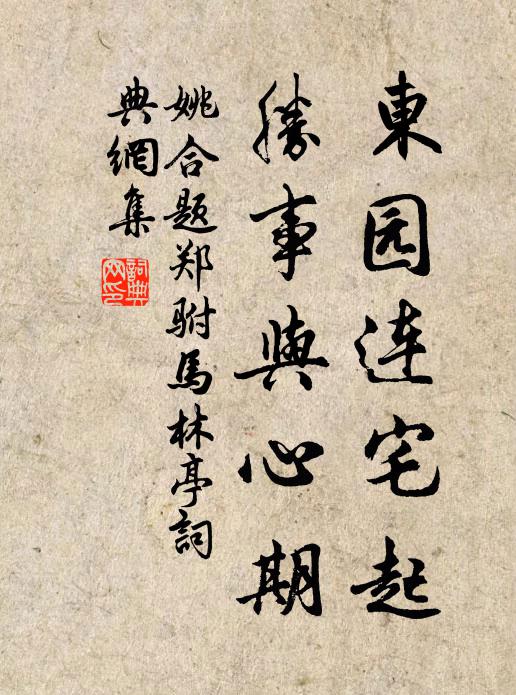 東园连宅起
勝事與心期
姚合题郑駙馬林亭詞
典網集
詞典网印